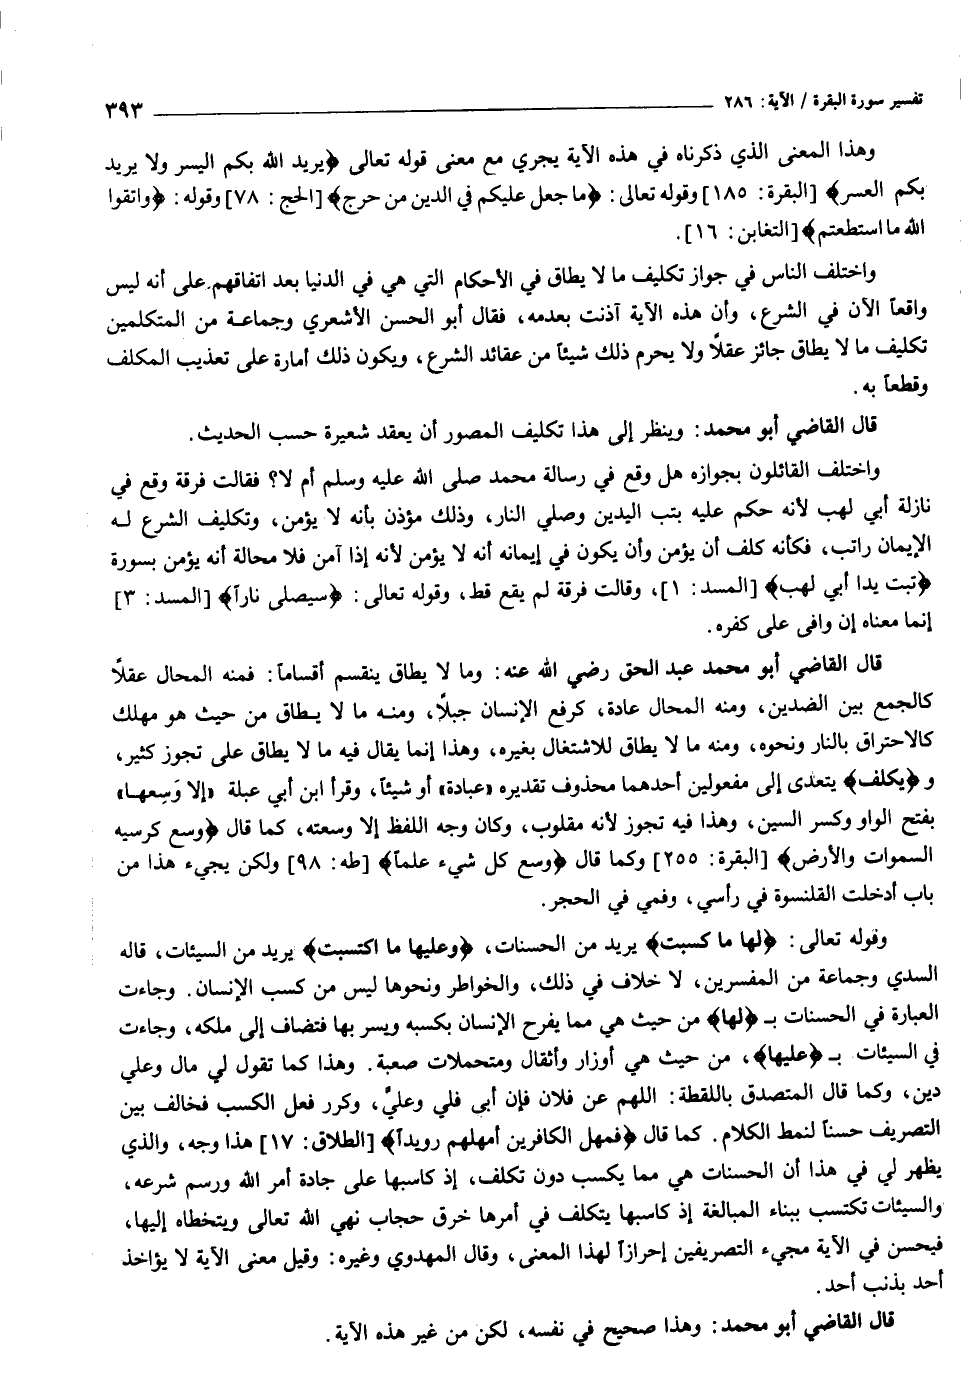 تفسير سورة البقرة / الآية: ٢٨٦ ـــــــــ ٣٩٣
وهذا المعنى الذي ذكرناه في هذه الآية يجري مع معنى قوله تعالى ﴿يريد الله بكم اليسر ولا يريد
بكم العسر﴾ [البقرة: ١٨٥] وقوله تعالى: ﴿ما جعل عليكم في الدين من حرج﴾ [الحج: ٧٨] وقوله: ﴿واتقوا
الله ما استطعتم﴾ [التغابن: ١٦].
واختلف الناس في جواز تكليف ما لا يطاق في الأحكام التي هي في الدنيا بعد اتفاقهم على أنه ليس
واقعاً الآن في الشرع، وأن هذه الآية آذنت بعدمه، فقال أبو الحسن الأشعري وجماعة من المتكلمين
تكليف ما لا يطاق جائز عقلاً ولا يحرم ذلك شيئاً من عقائد الشرع، ويكون ذلك أمارة على تعذيب المكلف
وقطعاً به.
قال القاضي أبو محمد: وينظر إلى هذا تكليف المصور أن يعقد شعيرة حسب الحديث.
واختلف القائلون بجوازه هل وقع في رسالة محمد صلى الله عليه وسلم أم لا؟ فقالت فرقة وقع في
نازلة أبي لهب لأنه حكم عليه بتب اليدين وصلي النار، وذلك مؤذن بأنه لا يؤمن، وتكليف الشرع له
الإيمان راتب، فكأنه كلف أن يؤمن وأن يكون في إيمانه أنه لا يؤمن لأنه إذا آمن فلا محالة أنه يؤمن بسورة
﴿تبت يدا أبي لهب﴾ [المسد: ١]، وقالت فرقة لم يقع قط، وقوله تعالى: ﴿سيصلى ناراً﴾ [المسد: ٣]
إنما معناه إن وافى على كفره.
قال القاضي أبو محمد عبد الحق رضي الله عنه: وما لا يطاق ينقسم أقساماً: فمنه المحال عقلاً
كالجمع بين الضدين، ومنه المحال عادة، كرفع الإنسان جبلاً، ومنه ما لا يطاق من حيث هو مهلك
كالاحتراق بالنار ونحوه، ومنه ما لا يطاق للاشتغال بغيره، وهذا إنما يقال فيه ما لا يطاق على تجوز كثير،
و ﴿يكلف﴾ يتعدى إلى مفعولين أحدهما محذوف تقديره «عبادة» أو شيئاً، وقرأ ابن أبي عبلة «إلا وَسِعها»
بفتح الواو وكسر السين، وهذا فيه تجوز لأنه مقلوب، وكان وجه اللفظ إلا وسعته، كما قال ﴿وسع كرسيه
السموات والأرض﴾ [البقرة: ٢٥٥] وكما قال ﴿وسع كل شيء علماً﴾ [طه: ٩٨] ولكن يجيء هذا من
باب أدخلت القلنسوة في رأسي، وفمي في الحجر.
وقوله تعالى: ﴿لها ما كسبت﴾ يريد من الحسنات، ﴿وعليها ما اكتسبت﴾ يريد من السيئات، قاله
السدي وجماعة من المفسرين، لا خلاف في ذلك، والخواطر ونحوها ليس من كسب الإنسان. وجاءت
العبارة في الحسنات بـ ﴿لها﴾ من حيث هي مما يفرح الإنسان بكسبه ويسر بها فتضاف إلى ملكه، وجاءت
في السيئات بـ ﴿عليها﴾، من حيث هي أوزار وأثقال ومتحملات صعبة. وهذا كما تقول لي مال وعلي
دين، وكما قال المتصدق باللقطة: اللهم عن فلان فإن أبى فلي وعليّ، وكرر فعل الكسب فخالف بين
التصريف حسناً لنمط الكلام. كما قال ﴿فمهل الكافرين أمهلهم رويداً﴾ [الطلاق: ١٧] هذا وجه، والذي
يظهر لي في هذا أن الحسنات هي مما يكسب دون تكلف، إذ كاسبها على جادة أمر الله ورسم شرعه،
والسيئات تكتسب ببناء المبالغة إذ كاسبها يتكلف في أمرها خرق حجاب نهي الله تعالى ويتخطاه إليها،
فيحسن في الآية مجيء التصريفين إحرازاً لهذا المعنى، وقال المهدوي وغيره: وقيل معنى الآية لا يؤاخذ
أحد بذنب أحد.
قال القاضي أبو محمد: وهذا صحيح في نفسه، لكن من غير هذه الآية.